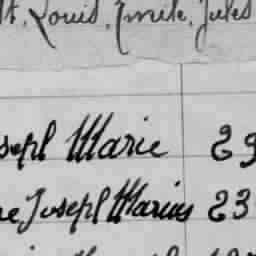 t, Louis, Emile, Jules
seph Marie 29
e Joseph Marius 23